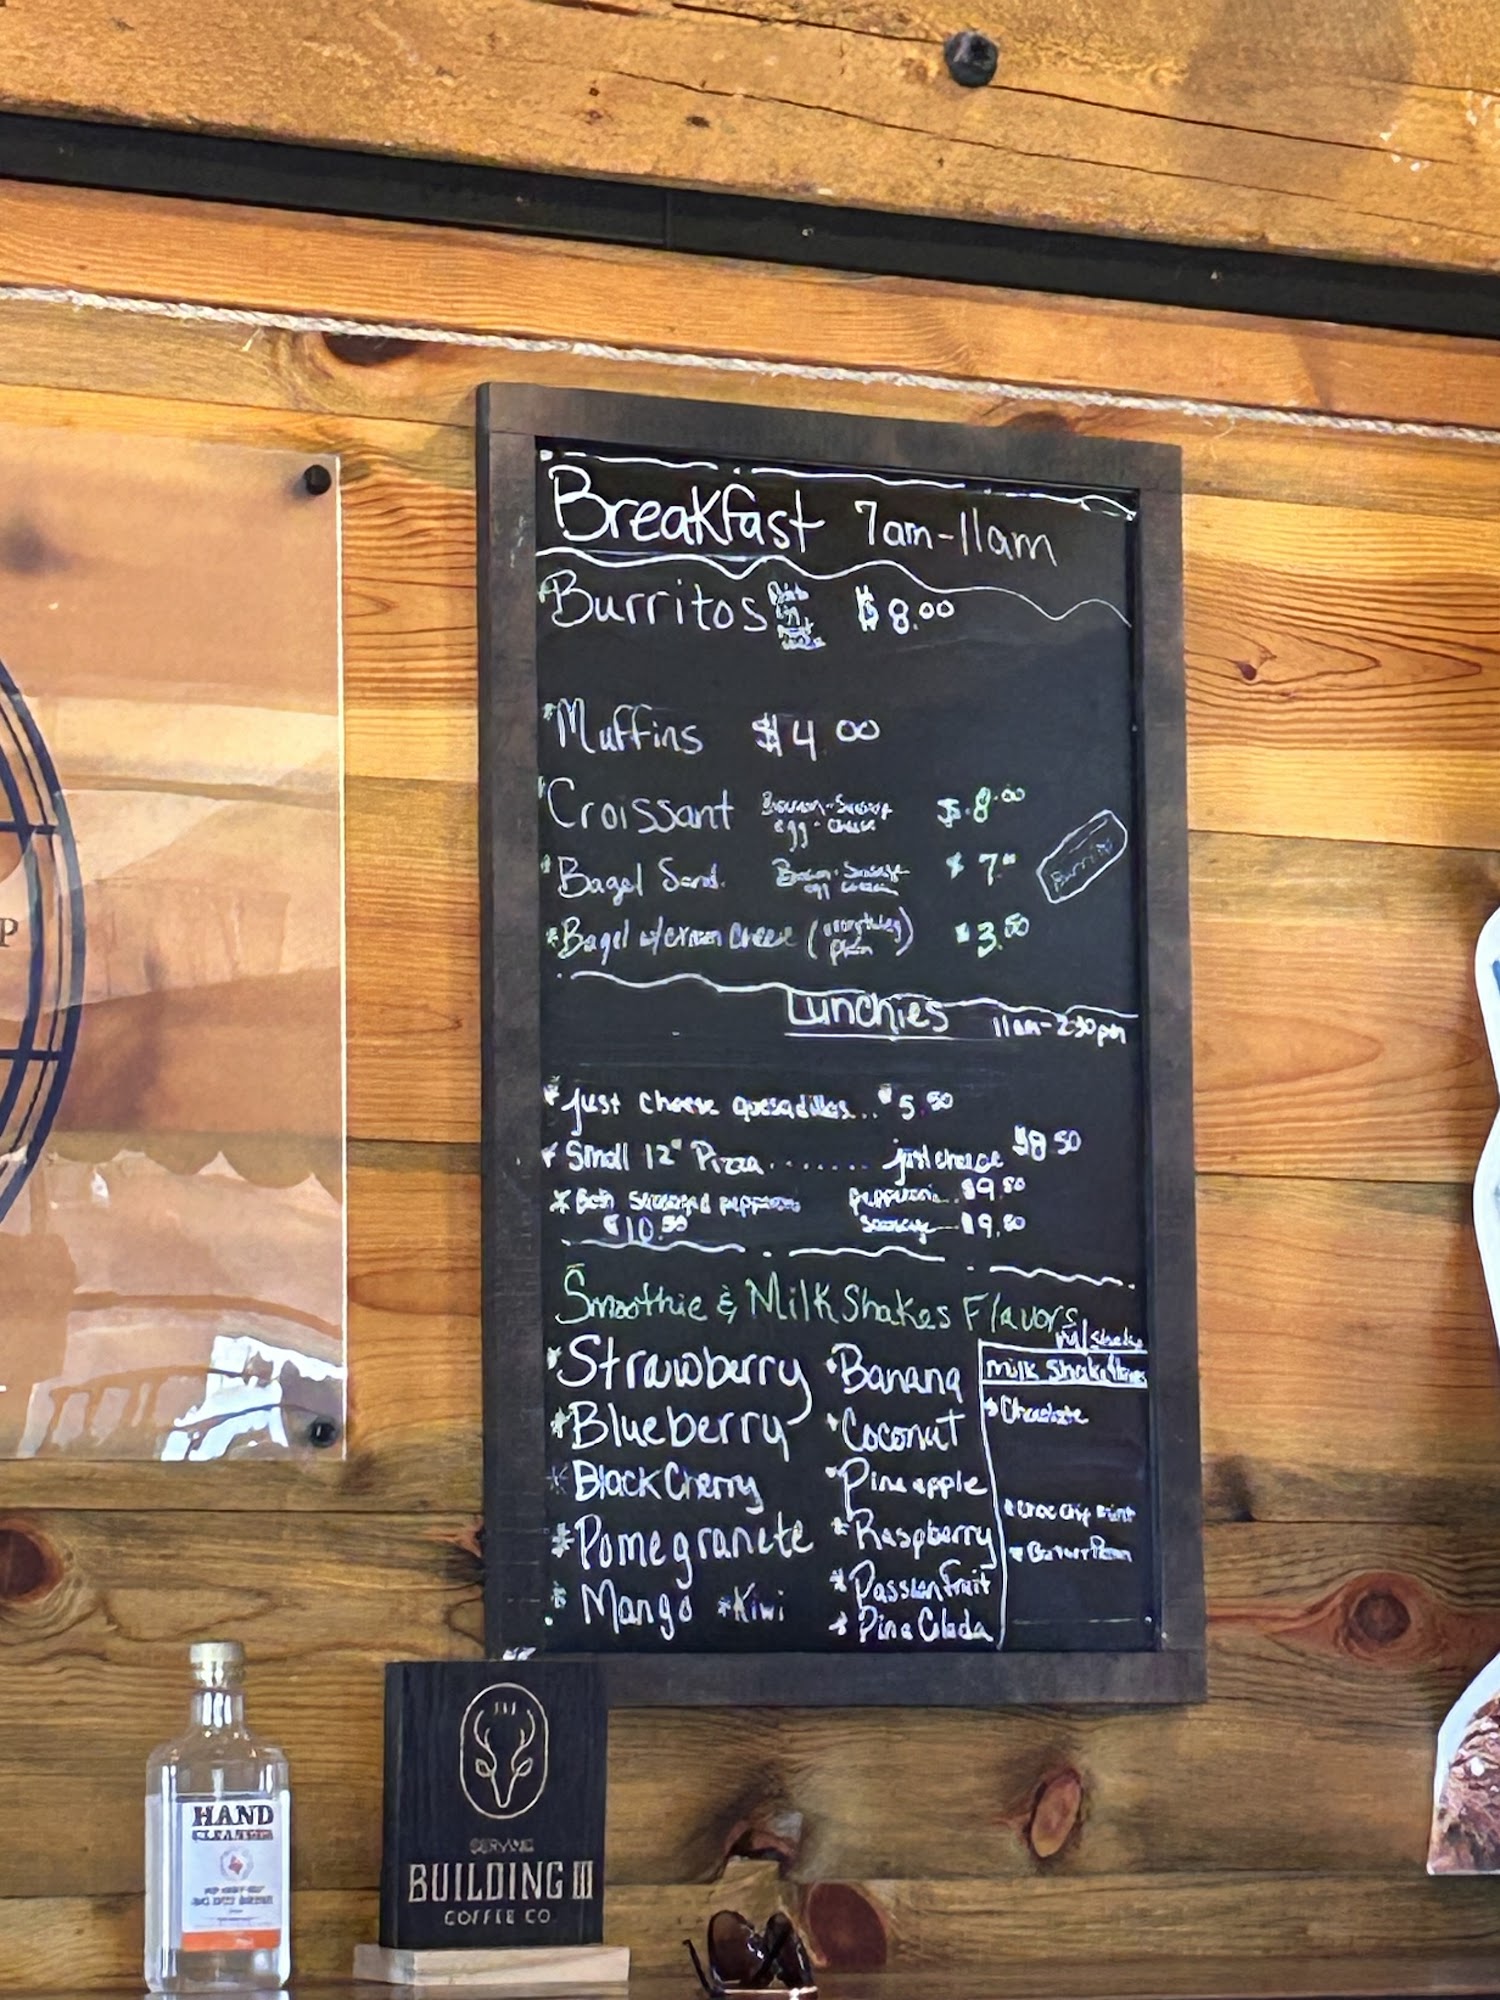 Breakfast 7am-11am
Burritos $8.00
Muffins $4.00
Croissant $8.00
egg - cheese
Bagel Sand. $7.00
egg
Bagel w/cream cheese (everything $3.50
plain)
Lunchies 11am-2:30pm
just cheese quesadillas... $5.50
Small 12" Pizza....... just cheese $8.50
Both sausage & pepperoni pepperoni.. $9.50
$10.50 sausage $9.50
Smoothie & MilkShakes Flavors
Strawberry Banana
Blueberry Coconut
Black Cherry Pineapple
Pomegranete Raspberry
Mango Kiwi Passion fruit
Pina Colada
Milk Shake
Chocolate
Choc Chip Mint
Butter Pecan
Burritos
P
HAND
CLEANSER
SERVING
BUILDING III
COFFEE CO.